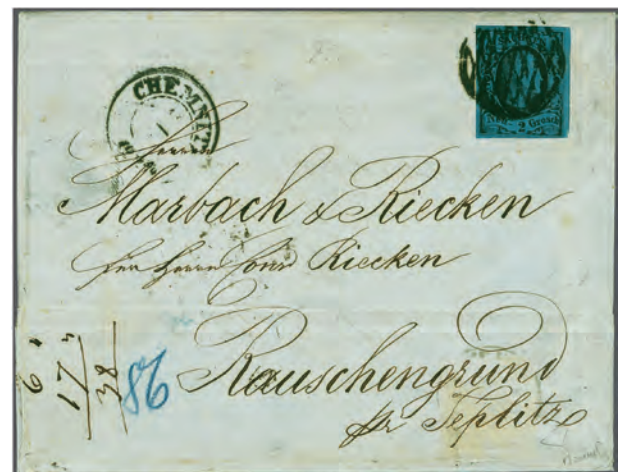 CHEMNITZ
2 Grosch
Herren
Marbach & Riecken
Riecken
Rauschengrund
pr Teplitz
6
17
38
86